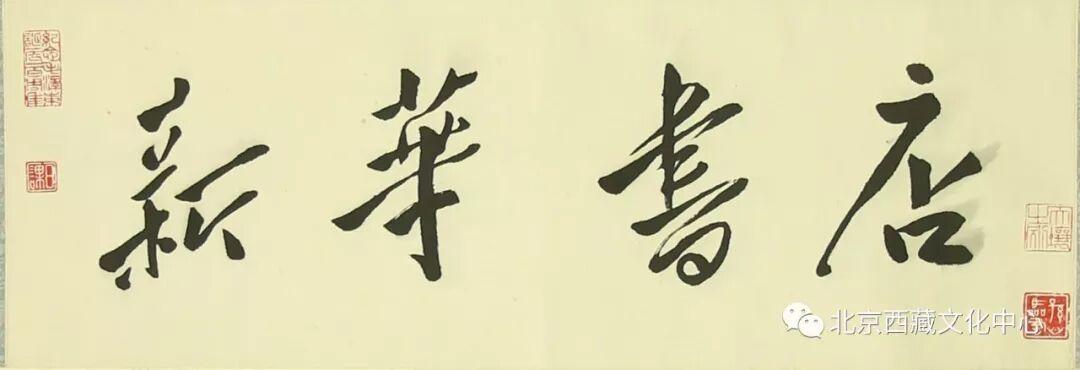 新華書店
北京西藏文化中心